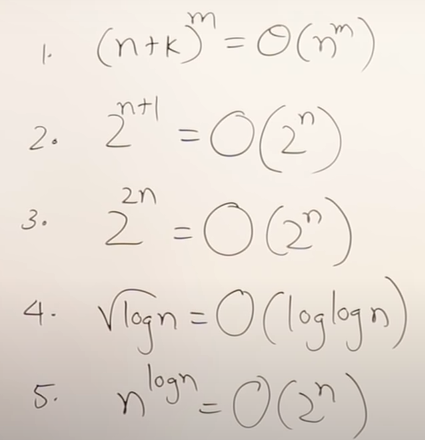 1. (n+k)^m = O(n^m)
2. 2^{n+1} = O(2^n)
3. 2^{2n} = O(2^n)
4. √logn = O(loglogn)
5. n^{logn} = O(2^n)